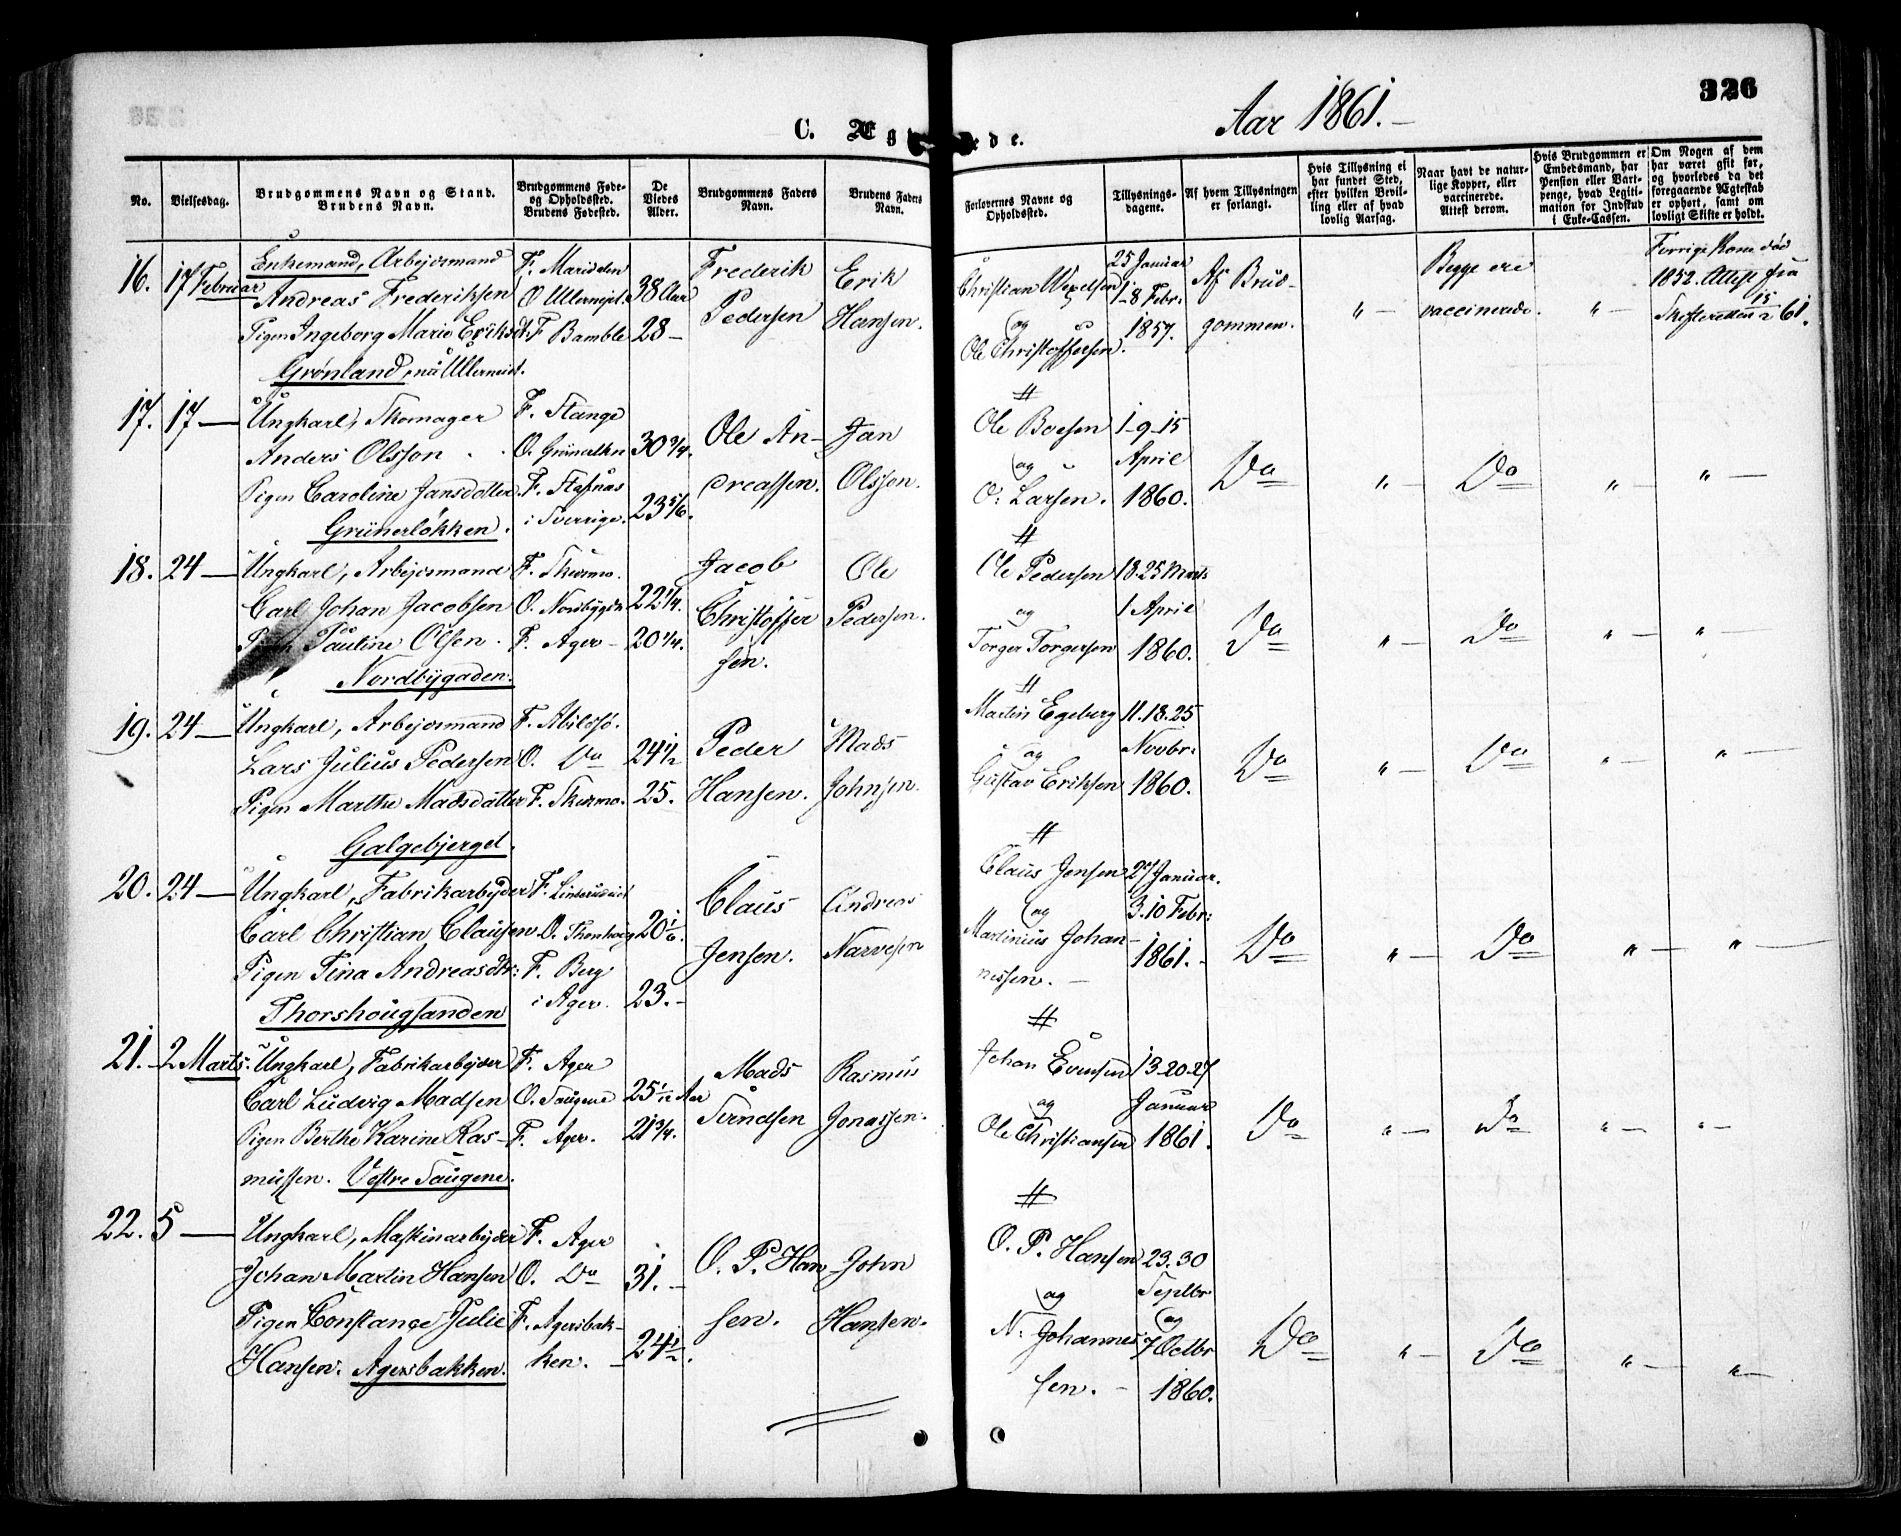 326
Aar 1861.
C. Ægteviede.
No.
Vielsesdag.
Brudgommens Navn og Stand.
Brudens Navn.
Brudgommens Føde-
og Opholdssted.
Brudens Fødested.
De
Viedes
Alder.
Brudgommens Faders
Navn.
Brudens Faders
Navn.
Forlovernes Navne og
Opholdssted.
Tillysnings-
dagene.
Af hvem Tillysningen
er forlangt.
Hvis Tillysning ei
har fundet Sted,
efter hvilken Bevil-
ling eller af hvad
lovlig Aarsag.
Naar havt de natur-
lige Kopper, eller
vaccinerede.
Attest derom.
Hvis Brudgommen er
Embedsmand, har
Pension eller Vart-
penge, hvad Legiti-
mation for Indskud
i Enke-Cassen.
Om Nogen af dem
har været gift før,
og hvorledes da det
foregaaende Ægteskab
er ophørt, samt om
lovligt Skifte er holdt.
16. 17 Februar
Enkemand, Arbejdsmand
Andreas Frederiksen
Pigen Ingeborg Marie Eriksdt:
Grønland, nu Ullernejet.
F. Maridalen
O Ullernejet
F Bamble
38 Aar
28 –
Frederik
Pedersen
Erik
Hansen.
Christian Wexelsen
og
Ole Christoffersen.
25 Januar
1-8 Febr:
1857.
Af Brud-
gommen.
" –
Begge ere
vaccinerede.
" –
Forrige Kone død
1852. Attest fra
Skifteretten 15/2 61.
17. 17 –
Ungkarl, Skomager
Anders Olsson
Pigen Caroline Jansdotter
Grünerløkken.
F. Stange
O. Grünerlkn
F. Stafnäs
i Sverrige.
30 3/4.
23 5/6.
Ole An-
dreassen.
Jan
Olsson.
Ole Boesen
og
O: Larsen.
1-9-15
April
1860.
Do
" –
Do
" –
" –
18. 24 –
Ungkarl, Arbejdsmand
Carl Johan Jacobsen
Pauline Olsen.
Nordbÿgaden.
F. Skedsmo.
O. Nordbÿgdn
F. Ager –
22 1/4.
20 1/4.
Jacob
Christoffer
sen.
Ole
Pedersen.
Ole Pedersen
og
Torger Torgersen
18.25 Marts
1 April
1860.
Do
" –
Do
" –
" –
19. 24 –
Ungkarl, Arbejdsmand
Lars Julius Pedersen
Pigen Marthe Madsdatter
Galgebjerget.
F. Abildsø.
O. Do
F. Skedsmo.
24 1/2
25.
Peder
Hansen.
Mads
Johnsen.
Martin Egeberg
og
Gustav Eriksen
11.18.25
Novbr:
1860.
Do
" –
Do
" –
" –
20. 24 –
Ungkarl, Fabrikarbejder
Carl Christian Clausen
Pigen Tina Andreasdtr:
Thorshougsanden
F. Linderudeiet
O. Thorshoug
F. Berg
i Ager.
20 1/6.
23. –
Claus
Jensen.
Andreas
Narvesen
Claus Jensen
og
Martinius Johan-
nessen. –
27 Januar.
3.10 Febr:
1861. –
Do
" –
Do
" –
" –
21. 2 Marts.
Ungkarl, Fabrikarbejder
Carl Ludvig Madsen
Pigen Berthe Karine Ras-
mussen. Vestre Saugene.
F. Ager
O. Saugene
F. Ager.
25 1/12 Aar
21 3/4.
Mads
Svendsen
Rasmus
Jonassen.
Johan Evensen
og
Ole Christiansen
13-20-27
Januar
1861.
Do
" –
Do
" –
" –
22. 5 –
Ungkarl, Maskinarbejder
Johan Martin Hansen
Pigen Constance Julie
Hansen. Agersbakken.
F. Ager
O. Do
F. Agersbak-
ken. –
31. –
24 1/2.
O. P. Han
sen.
John
Hansen.
O. P. Hansen
og
N: Johannes
sen. –
23.30
Septbr
og
7 Octbr
1860.
Do
" –
Do
" –
" –